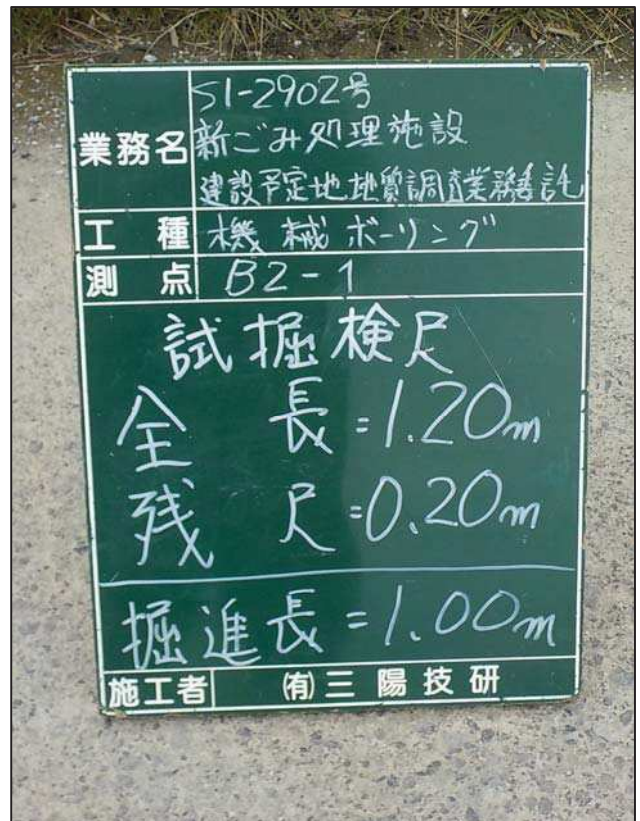 業務名 S1-2902号
新ごみ処理施設
建設予定地地質調査業務委託
工種 機械ボーリング
測点 B2-1
試掘検尺
全長=1.20m
残尺=0.20m
掘進長=1.00m
施工者 (有)三陽技研